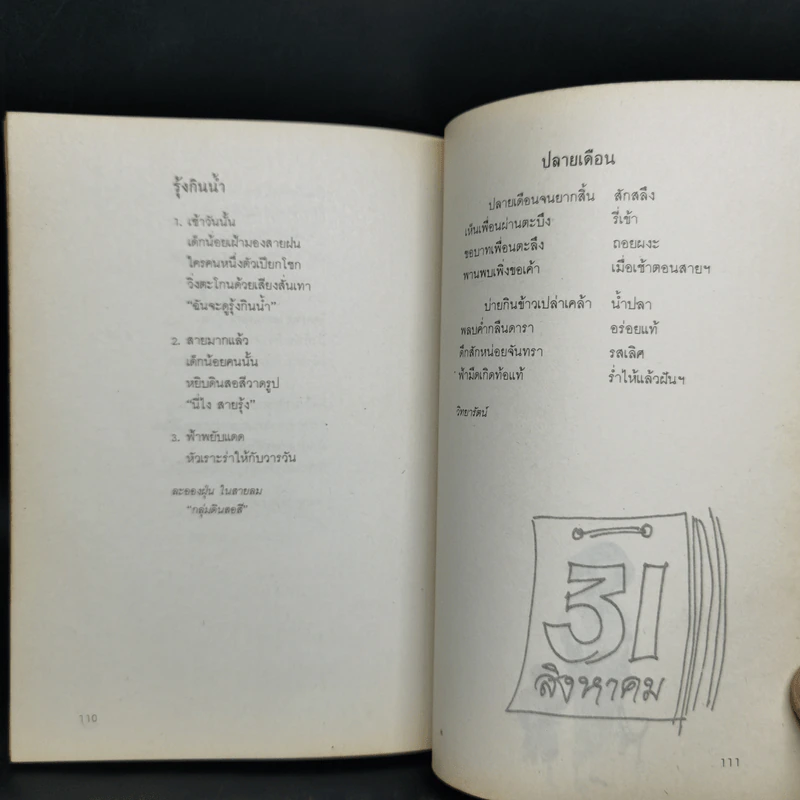 รุ้งกินน้ำ
1. เช้าวันนั้น
เด็กน้อยเฝ้ามองสายฝน
ใครคนหนึ่งตัวเปียกโชก
วิ่งตะโกนด้วยเสียงสั่นเทา
“ฉันจะดูรุ้งกินน้ำ”
2. สายมากแล้ว
เด็กน้อยคนนั้น
หยิบดินสอสีวาดรูป
“นี่ไง สายรุ้ง”
3. ฟ้าพยับแดด
หัวเราะร่าให้กับวารวัน
ละอองฝุ่น ในสายลม
“กลุ่มดินสอสี”
110
ปลายเดือน
ปลายเดือนจนยากสิ้น สักสลึง
เห็นเพื่อนผ่านตะบึง รี่เข้า
ขอบาทเพื่อนตะลึง ถอยผงะ
พานพบเพิ่งขอเค้า เมื่อเช้าตอนสายฯ
บ่ายกินข้าวเปล่าเคล้า น้ำปลา
พลบค่ำกลืนดารา อร่อยแท้
ดึกสักหน่อยจันทรา รสเลิศ
ฟ้ามืดเกิดท้อแท้ ร่ำไห้แล้วฝันฯ
วิทยารัตน์
31
สิงหาคม
111